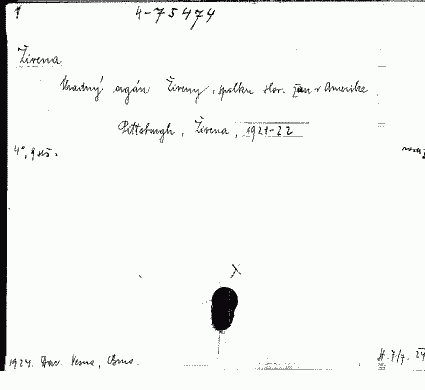 4-75474
Živena
Úradný orgán Živeny, spolku slov. žien v Amerike
Pittsburgh, Živena, 1921-22
4°, 9 seš.
X
1924. Dar. Vesna, Brno.
7/7. 24